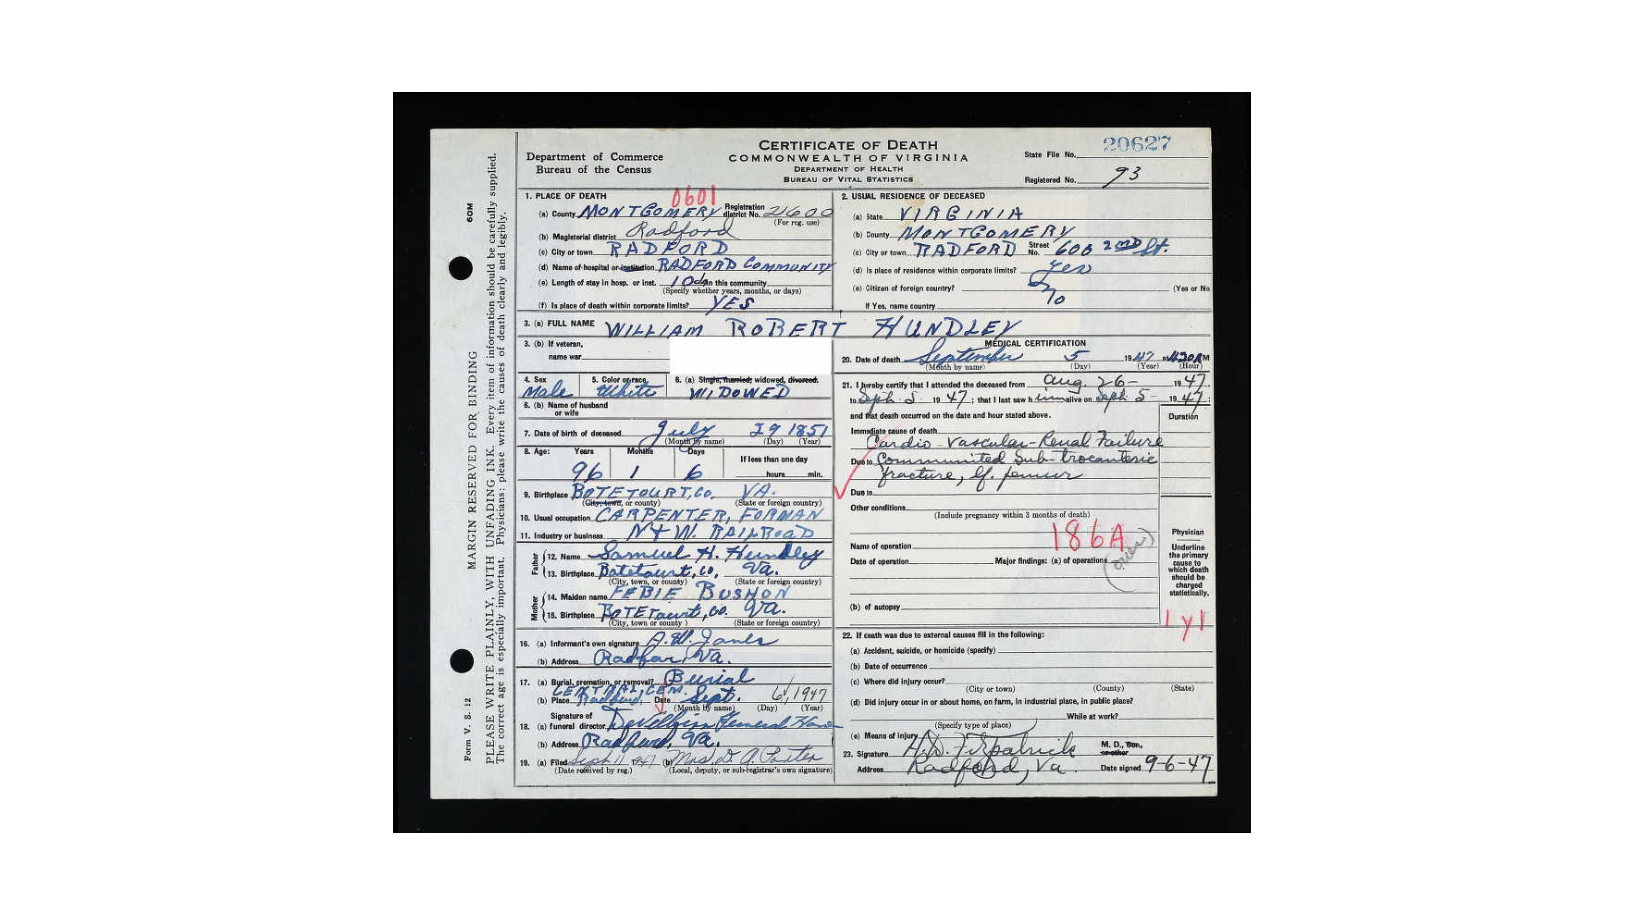 20627
CERTIFICATE OF DEATH
COMMONWEALTH OF VIRGINIA
DEPARTMENT OF HEALTH
BUREAU OF VITAL STATISTICS
Department of Commerce
Bureau of the Census
State File No.
Registered No. 93
MARGIN RESERVED FOR BINDING
60M
Form V. S. 12
PLEASE WRITE PLAINLY, WITH UNFADING INK. Every item of information should be carefully supplied.
The correct age is especially important. Physicians: please write the causes of death clearly and legibly.
1. PLACE OF DEATH 0601
(a) County MONTGOMERY Registration district No. 21600
(For reg. use)
(b) Magisterial district Radford
(c) City or town RADFORD
(d) Name of hospital or institution RADFORD COMMUNITY
(e) Length of stay in hosp. or inst. 10 da in this community
(Specify whether years, months, or days)
(f) Is place of death within corporate limits? YES
2. USUAL RESIDENCE OF DECEASED
(a) State VIRGINIA
(b) County MONTGOMERY
(c) City or town RADFORD Street No. 600 2ND St.
(d) Is place of residence within corporate limits? Yes
(e) Citizen of foreign country? No (Yes or No
If Yes, name country
3. (a) FULL NAME WILLIAM ROBERT HUNDLEY
3. (b) If veteran,
name war
4. Sex Male
5. Color or race White
6. (a) Single, married, widowed, divorced. WIDOWED
6. (b) Name of husband
or wife
7. Date of birth of deceased July 29 1851
(Month by name) (Day) (Year)
8. Age: Years Months Days If less than one day
96 1 6 hours min.
9. Birthplace BOTETOURT, CO. VA.
(City, town, or county) (State or foreign country)
10. Usual occupation CARPENTER, FORMAN
11. Industry or business N & W. RAILROAD
Father
12. Name Samuel H. Hundley
13. Birthplace Botetourt, Co, Va.
(City, town, or county) (State or foreign country)
Mother
14. Maiden name FEBIE BUSHON
15. Birthplace BOTETourt, Co. Va.
(City, town or county ) (State or foreign country)
16. (a) Informant's own signature A.W. Janes
(b) Address Radford, Va.
17. (a) Burial, cremation, or removal? Burial
CENTRAL, CEM.
(b) Place Radford, Date Sept. 6, 1947
(Month by name) (Day) (Year)
Signature of
18. (a) funeral director
(b) Address Radford, Va.
19. (a) Filed Sept 11 1947 (b) Mrs D. A. Porter
(Date received by reg.) (Local, deputy, or sub-registrar's own signature)
MEDICAL CERTIFICATION
20. Date of death September 5 1947 4:20 A M
(Month by name) (Day) (Year) (Hour)
21. I hereby certify that I attended the deceased from Aug. 26- 1947
to Sept. 5 1947; that I last saw him alive on Sept 5- 1947;
and that death occurred on the date and hour stated above. Duration
Immediate cause of death
Cardio-Vascular-Renal Failure
Due to Communited Sub-trocanteric
fracture, lf. femur
Due to
Other conditions
(Include pregnancy within 3 months of death)
186A
(over)
Name of operation
Date of operation Major findings: (a) of operations
(b) of autopsy
Physician
Underline
the primary
cause to
which death
should be
charged
statistically.
1 y 1
22. If death was due to external causes fill in the following:
(a) Accident, suicide, or homicide (specify)
(b) Date of occurrence
(c) Where did injury occur?
(City or town) (County) (State)
(d) Did injury occur in or about home, on farm, in industrial place, in public place?
While at work?
(Specify type of place)
(e) Means of injury
23. Signature Fitzpatrick M. D.,
or other
Address Radford, Va Date signed 9-6-47